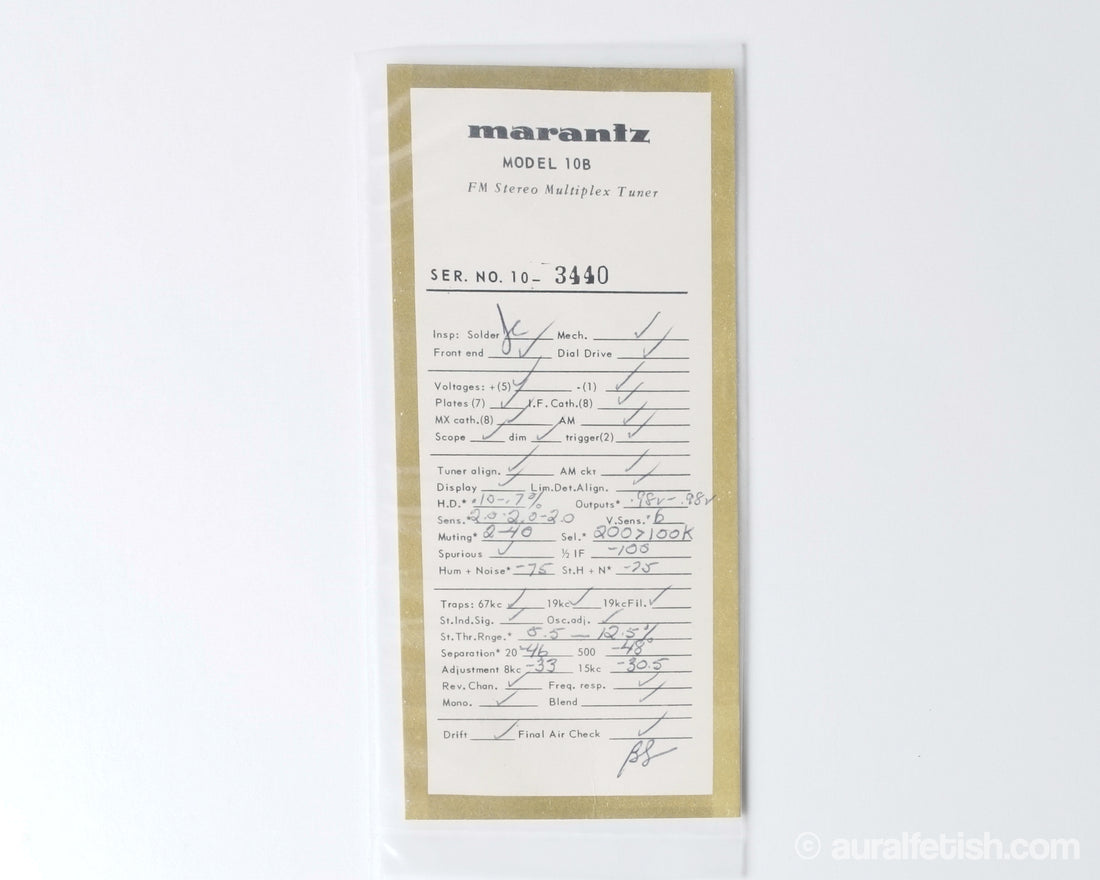 marantz
MODEL 10B
FM Stereo Multiplex Tuner
SER. NO. 10- 3440
Insp: Solder Jc Mech. ✓
Front end ✓ Dial Drive ✓
Voltages: +(5) ✓ -(1) ✓
Plates (7) ✓ I.F. Cath.(8) ✓
MX cath.(8) ✓ AM ✓
Scope ✓ dim ✓ trigger(2) ✓
Tuner align. ✓ AM ckt ✓
Display ✓ Lim.Det.Align. ✓
H.D.* .10-.7% Outputs* .98v-.98v
Sens.* 2.0-2.0-2.0 V.Sens.* 6
Muting* 2-40 Sel.* 200>100K
Spurious ✓ ½ IF -100
Hum + Noise* -75 St.H + N* -75
Traps: 67kc ✓ 19kc ✓ 19kcFil. ✓
St.Ind.Sig. ✓ Osc.adj. ✓
St.Thr.Rnge.* 5.5 — 12.5%
Separation* 20 -46 500 -48
Adjustment 8kc -33 15kc -30.5
Rev. Chan. ✓ Freq. resp. ✓
Mono. ✓ Blend ✓
Drift ✓ Final Air Check ✓
© auralfetish.com